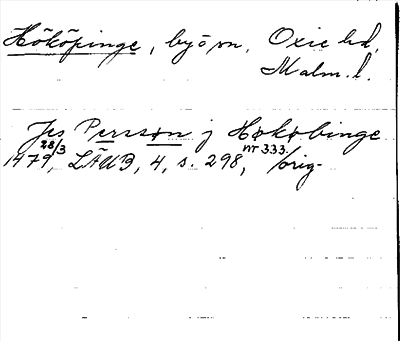 Hököpinge, by o sn, Oxie hd,
Malm. l.
Jes Persson j Høkøbinge
1479 28/3, LÄUB, 4, s. 298, nr 333. orig.